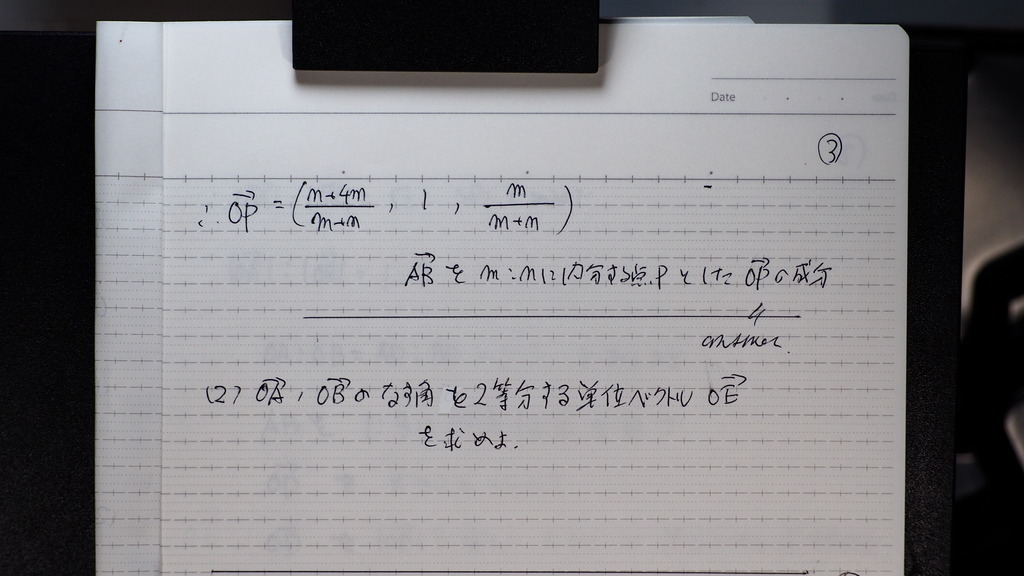 Date
③
∴ \overrightarrow{OP} = ( \frac{n+4m}{m+n} , 1 , \frac{m}{m+n} )
\overrightarrow{AB} を m:nに内分する点Pとした \overrightarrow{OP} の成分
answer.
(2) \overrightarrow{OA}, \overrightarrow{OB} のなす角を2等分する単位ベクトル \overrightarrow{OE}
を求めよ.